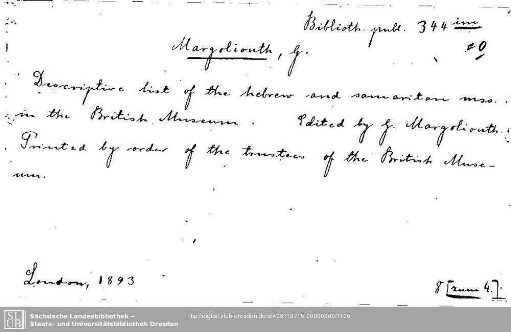 Biblioth. publ. 344 im
Margoliouth, G.
Descriptive list of the hebrew and samaritan mss.
in the British Museum. Edited by G. Margoliouth.
Printed by order of the trustees of the British Muse-
um.
London, 1893
8 [zum 4.]
SLUB
Sächsische Landesbibliothek –
Staats- und Universitätsbibliothek Dresden